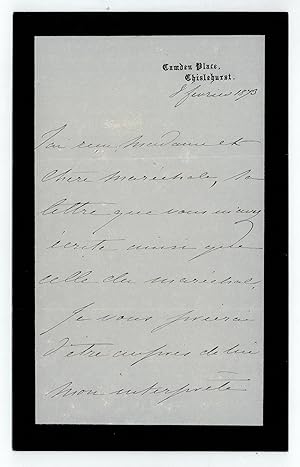 Camden Place,
Chislehurst.
8 fevrier 1873
J'ai reçu, Madame et
Chère Maréchale, la
lettre que vous m'avez
écrite ainsi que
celle du Maréchal.
Je vous prierai
d'être auprès de lui
mon interprète